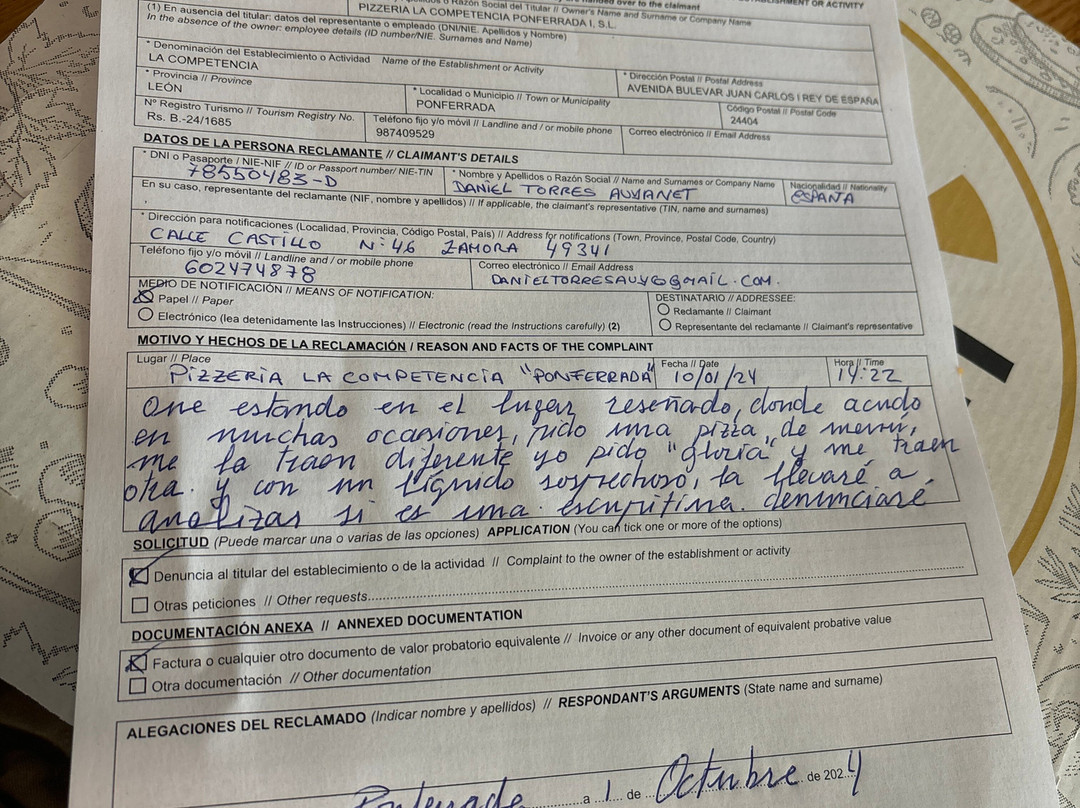 (1) En ausencia del titular: datos del representante o empleado (DNI/NIE. Apellidos y Nombre)
Apellidos o Razón Social del Titular // Owner's Name and Surname or Company Name
PIZZERIA LA COMPETENCIA PONFERRADA I, S.L.
In the absence of the owner: employee details (ID number/NIE. Surnames and Name)
* Denominación del Establecimiento o Actividad Name of the Establishment or Activity
LA COMPETENCIA
* Dirección Postal // Postal Address
AVENIDA BULEVAR JUAN CARLOS I REY DE ESPAÑA
* Provincia // Province
LEÓN
* Localidad o Municipio // Town or Municipality
PONFERRADA
Código Postal // Postal Code
24404
Nº Registro Turismo // Tourism Registry No.
Rs. B.-24/1685
Teléfono fijo y/o móvil // Landline and / or mobile phone
987409529
Correo electrónico // Email Address
DATOS DE LA PERSONA RECLAMANTE // CLAIMANT'S DETAILS
* DNI o Pasaporte / NIE-NIF // ID or Passport number/ NIE-TIN
78550483-D
* Nombre y Apellidos o Razón Social // Name and Surnames or Company Name
DANIEL TORRES AUVANET
Nacionalidad // Nationality
ESPAÑA
En su caso, representante del reclamante (NIF, nombre y apellidos) // If applicable, the claimant's representative (TIN, name and surnames)
* Dirección para notificaciones (Localidad, Provincia, Código Postal, País) // Address for notifications (Town, Province, Postal Code, Country)
CALLE CASTILLO Nº 46 ZAMORA 49341
Teléfono fijo y/o móvil // Landline and / or mobile phone
602474878
Correo electrónico // Email Address
DANIELTORRESAUV6@GMAIL.COM.
MEDIO DE NOTIFICACIÓN // MEANS OF NOTIFICATION:
Papel // Paper
Electrónico (lea detenidamente las Instrucciones) // Electronic (read the Instructions carefully) (2)
DESTINATARIO // ADDRESSEE:
Reclamante // Claimant
Representante del reclamante // Claimant's representative
MOTIVO Y HECHOS DE LA RECLAMACIÓN / REASON AND FACTS OF THE COMPLAINT
Lugar // Place
PIZZERIA LA COMPETENCIA "PONFERRADA"
Fecha // Date
10/01/24
Hora // Time
14:22
Que estando en el lugar reseñado, donde acudo
en muchas ocasiones, pido una pizza, de menú,
me la traen diferente yo pido "gloria" y me traen
otra. y con un líquido sospechoso, la llevaré a
analizar si es una escupitina. denunciaré
SOLICITUD (Puede marcar una o varias de las opciones) APPLICATION (You can tick one or more of the options)
Denuncia al titular del establecimiento o de la actividad // Complaint to the owner of the establishment or activity
Otras peticiones // Other requests
DOCUMENTACIÓN ANEXA // ANNEXED DOCUMENTATION
Factura o cualquier otro documento de valor probatorio equivalente // Invoice or any other document of equivalent probative value
Otra documentación // Other documentation
ALEGACIONES DEL RECLAMADO (Indicar nombre y apellidos) // RESPONDANT'S ARGUMENTS (State name and surname)
Ponferrada a 1 de Octubre de 2024